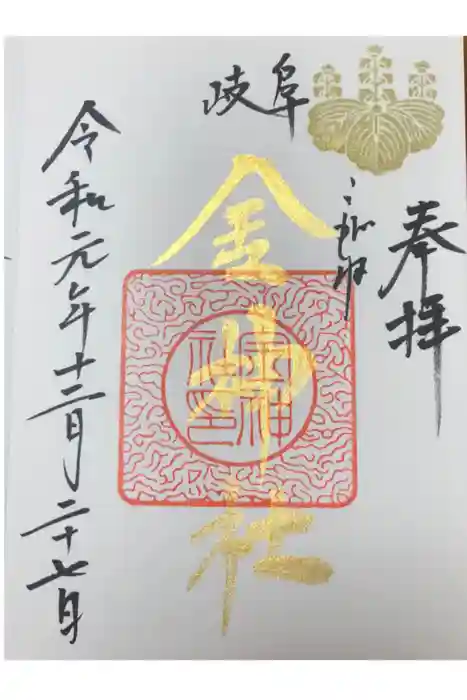 奉拝
岐阜
こがね
金神社
金神社印
令和元年十二月二十七日